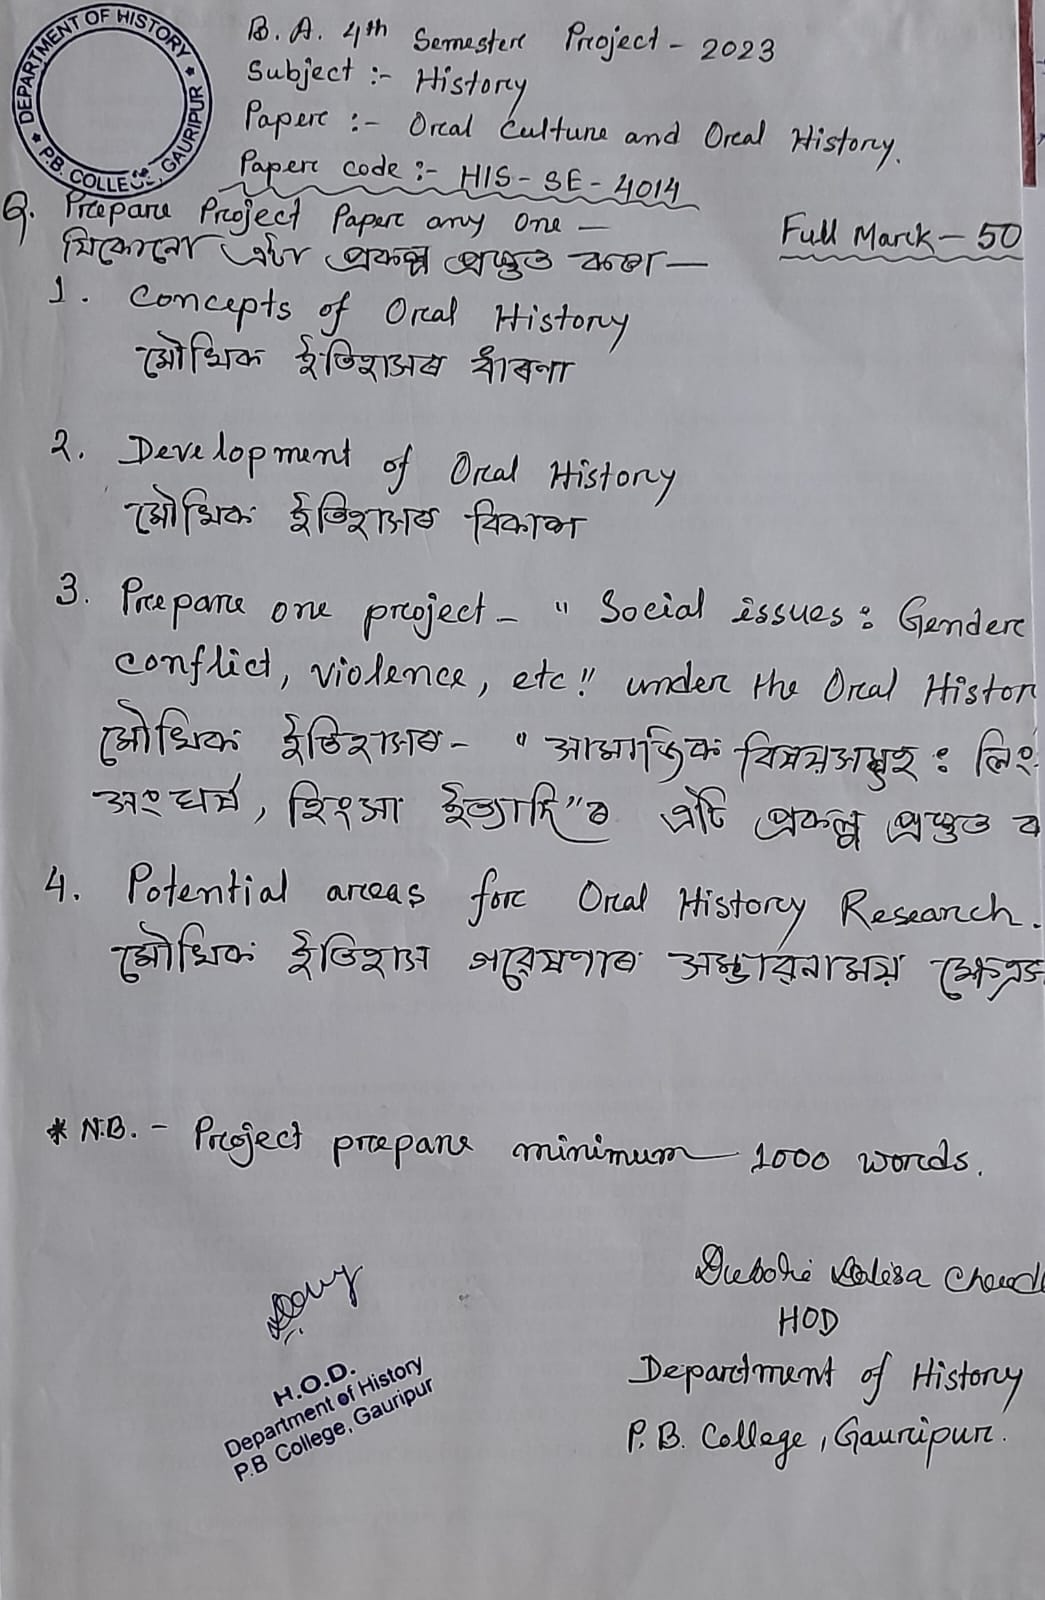 DEPARTMENT OF HISTORY
P.B. COLLEGE, GAURIPUR
B. A. 4th Semester Project - 2023
Subject :- History
Paper :- Oral Culture and Oral History.
Paper code :- HIS - SE - 4014
Q. Prepare Project Paper any one —
Full Mark - 50
যিকোনো এটা প্ৰকল্প প্ৰস্তুত কৰা —
1. Concepts of Oral History
মৌখিক ইতিহাসৰ ধাৰণা
2. Development of Oral History
মৌখিক ইতিহাসৰ বিকাশ
3. Prepare one project - " Social issues : Gender
conflict, violence, etc." under the Oral Histor
মৌখিক ইতিহাসৰ - " সামাজিক বিষয়সমূহ : লিং
সংঘৰ্ষ, হিংসা ইত্যাদি"ৰ এটি প্ৰকল্প প্ৰস্তুত ক
4. Potential areas for Oral History Research.
মৌখিক ইতিহাস গৱেষণাৰ সম্ভাৱনাময়
* N.B. - Project prepare minimum 1000 words.
HOD
Department of History
P. B. College, Gauripur.
H.O.D.
Department of History
P.B College, Gauripur